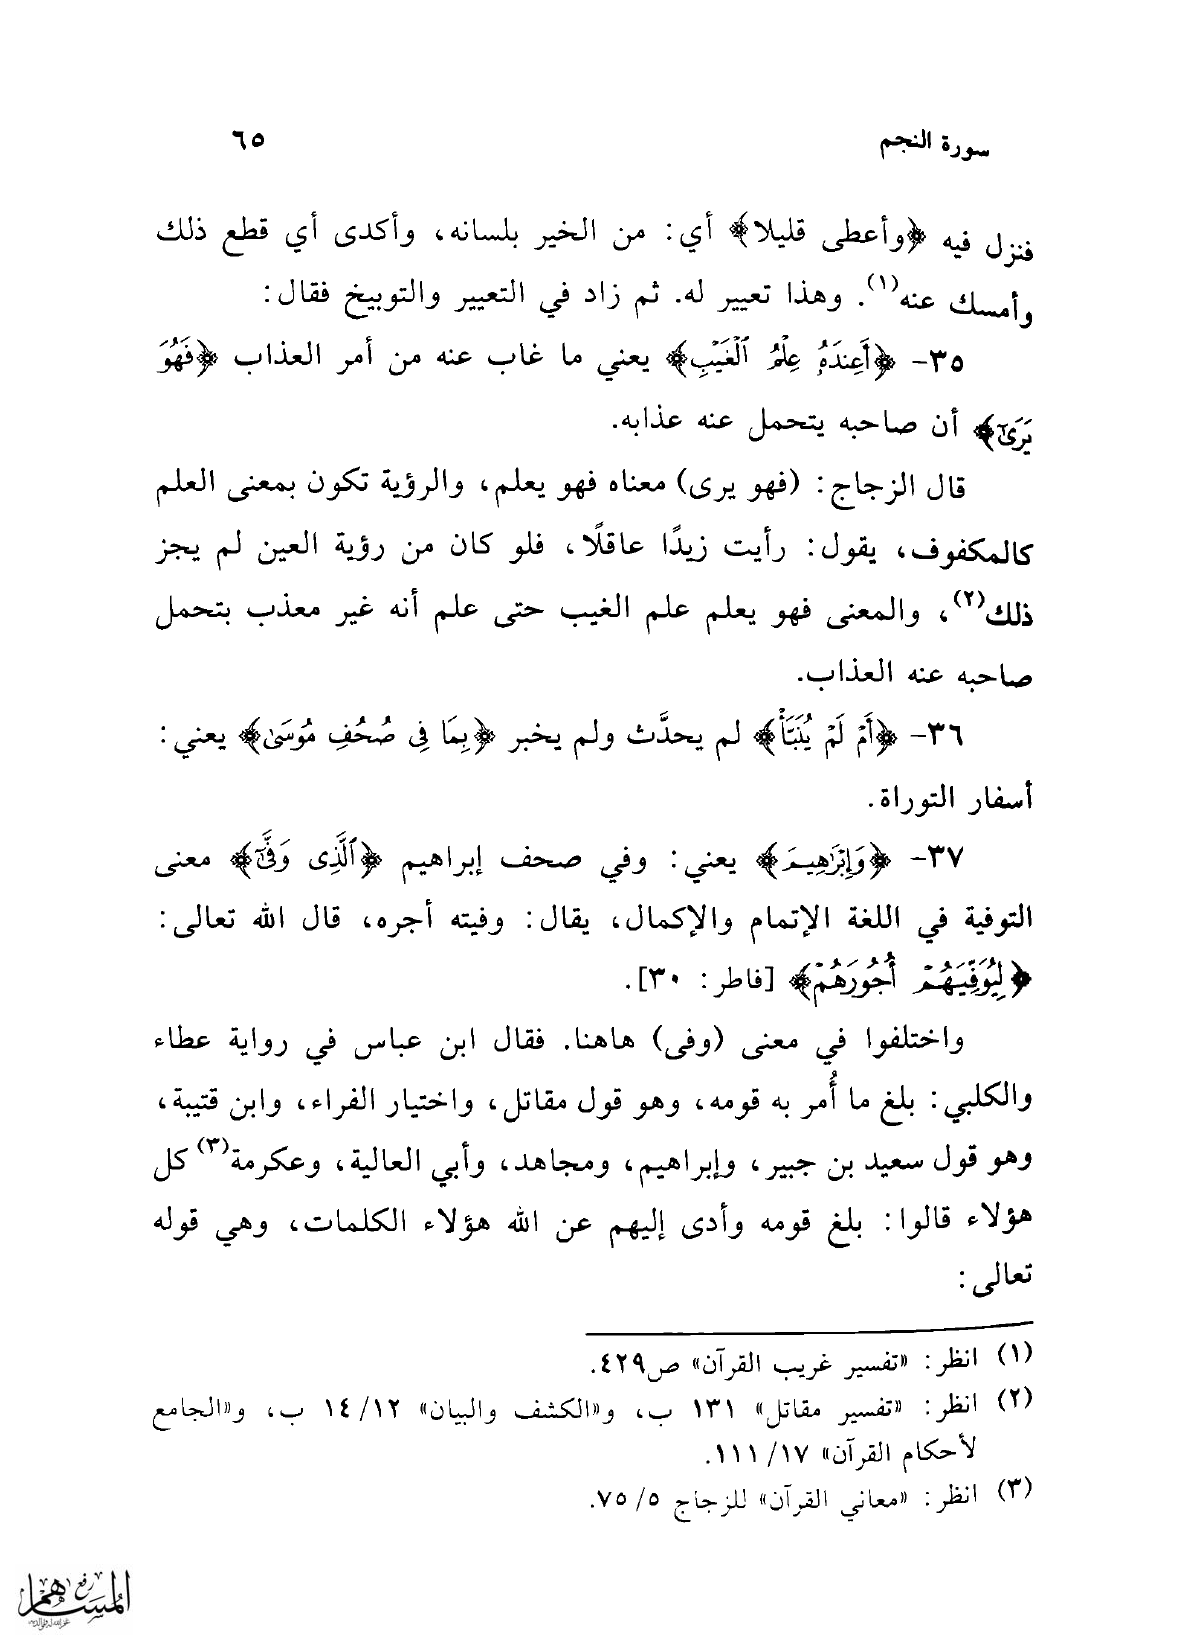 سورة النجم ٦٥
فنزل فيه ﴿وأعطى قليلا﴾ أي: من الخير بلسانه، وأكدى أي قطع ذلك
وأمسك عنه(١). وهذا تعيير له. ثم زاد في التعيير والتوبيخ فقال:
٣٥- ﴿أَعِندَهُۥ عِلْمُ ٱلْغَيْبِ﴾ يعني ما غاب عنه من أمر العذاب ﴿فَهُوَ
يَرَىٰٓ﴾ أن صاحبه يتحمل عنه عذابه.
قال الزجاج: (فهو يرى) معناه فهو يعلم، والرؤية تكون بمعنى العلم
كالمكفوف، يقول: رأيت زيدًا عاقلًا، فلو كان من رؤية العين لم يجز
ذلك(٢)، والمعنى فهو يعلم علم الغيب حتى علم أنه غير معذب بتحمل
صاحبه عنه العذاب.
٣٦- ﴿أَمْ لَمْ يُنَبَّأْ﴾ لم يحدَّث ولم يخبر ﴿بِمَا فِى صُحُفِ مُوسَىٰ﴾ يعني:
أسفار التوراة.
٣٧- ﴿وَإِبْرَٰهِيمَ﴾ يعني: وفي صحف إبراهيم ﴿ٱلَّذِى وَفَّىٰٓ﴾ معنى
التوفية في اللغة الإتمام والإكمال، يقال: وفيته أجره، قال الله تعالى:
﴿لِيُوَفِّيَهُمْ أُجُورَهُمْ﴾ [فاطر: ٣٠].
واختلفوا في معنى (وفى) هاهنا. فقال ابن عباس في رواية عطاء
والكلبي: بلغ ما أُمر به قومه، وهو قول مقاتل، واختيار الفراء، وابن قتيبة،
وهو قول سعيد بن جبير، وإبراهيم، ومجاهد، وأبي العالية، وعكرمة(٣) كل
هؤلاء قالوا: بلغ قومه وأدى إليهم عن الله هؤلاء الكلمات، وهي قوله
تعالى:
(١) انظر: «تفسير غريب القرآن» ص٤٢٩.
(٢) انظر: «تفسير مقاتل» ١٣١ ب، و«الكشف والبيان» ١٤/١٢ ب، و«الجامع
لأحكام القرآن» ١٧/ ١١١.
(٣) انظر: «معاني القرآن» للزجاج ٥/ ٧٥.